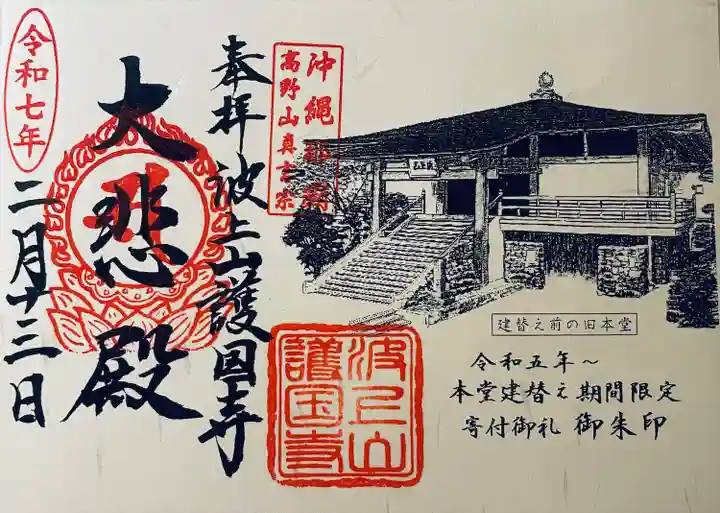 令和七年
二月十三日
大悲殿
奉拝
波上山護国寺
沖縄
高野山真言宗
波上山
護国寺
建替え前の旧本堂
令和五年～
本堂建替え期間限定
寄付御礼 御朱印